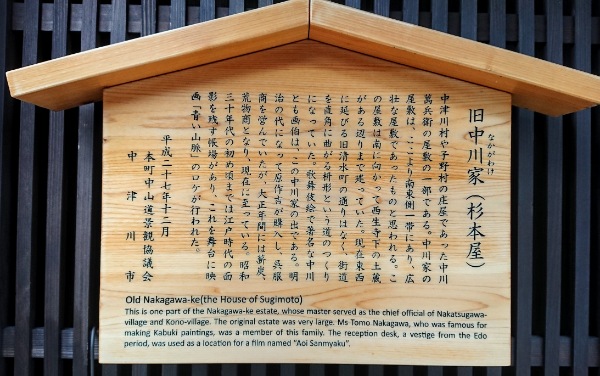 なかがわけ
旧中川家(杉本屋)
中津川村や子野村の庄屋であった中川
萬兵衛の屋敷の一部である。中川家の
屋敷は、ここより南東側一帯にあり、広
壮な屋敷であったものと思われる。こ
の屋敷は南に向かって西生寺下の土蔵
がある辺りまで っていた。現在東西
に延びる旧清水町の通りはなく、街道
を直角に曲がる桝形という道のつくり
になっていた。歌舞伎絵で著名な中川
とも画伯は、この中川家の出である。明
治の代になって原作吉が購入し、呉服
商を営んでいたが、大正年間には薪炭、
荒物商となり、現在に至っている。昭和
三十年代の初め頃までは江戸時代の面
影を残す帳場があり、これを舞台に映
画「青い山脈」のロケが行われた。
平成二十七年十二月
本町中山道景観協議会
中津川市
Old Nakagawa-ke(the House of Sugimoto)
This is one part of the Nakagawa-ke estate, whose master served as the chief official of Nakatsugawa-
village and Kono-village. The original estate was very large. Ms Tomo Nakagawa, who was famous for
making Kabuki paintings, was a member of this family. The reception desk, a vestige from the Edo
period, was used as a location for a film named “Aoi Sanmyaku”.